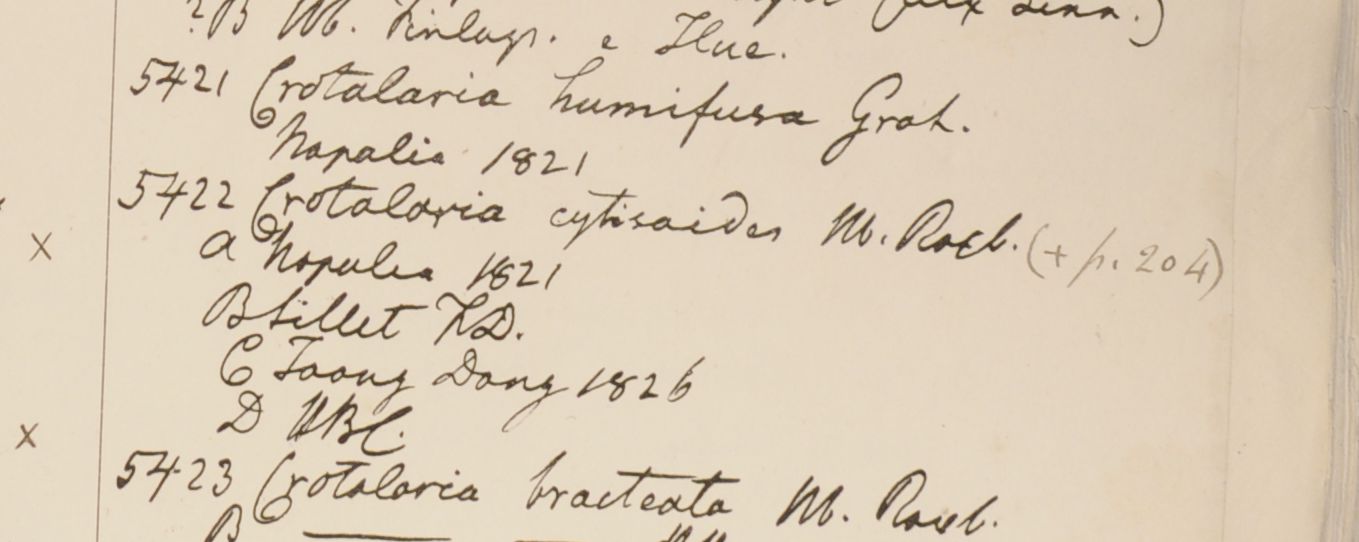 ?B M. Finlays. e Hue.
5421 Crotalaria humifusa Grah.
Napalia 1821
5422 Crotalaria cytisoides M. Roxb. (+ p. 204)
X a Napalia 1821
B Sillet F.D.
C Taong Dong 1826
X D HBC.
5423 Crotalaria bracteata M. Roxb.
B